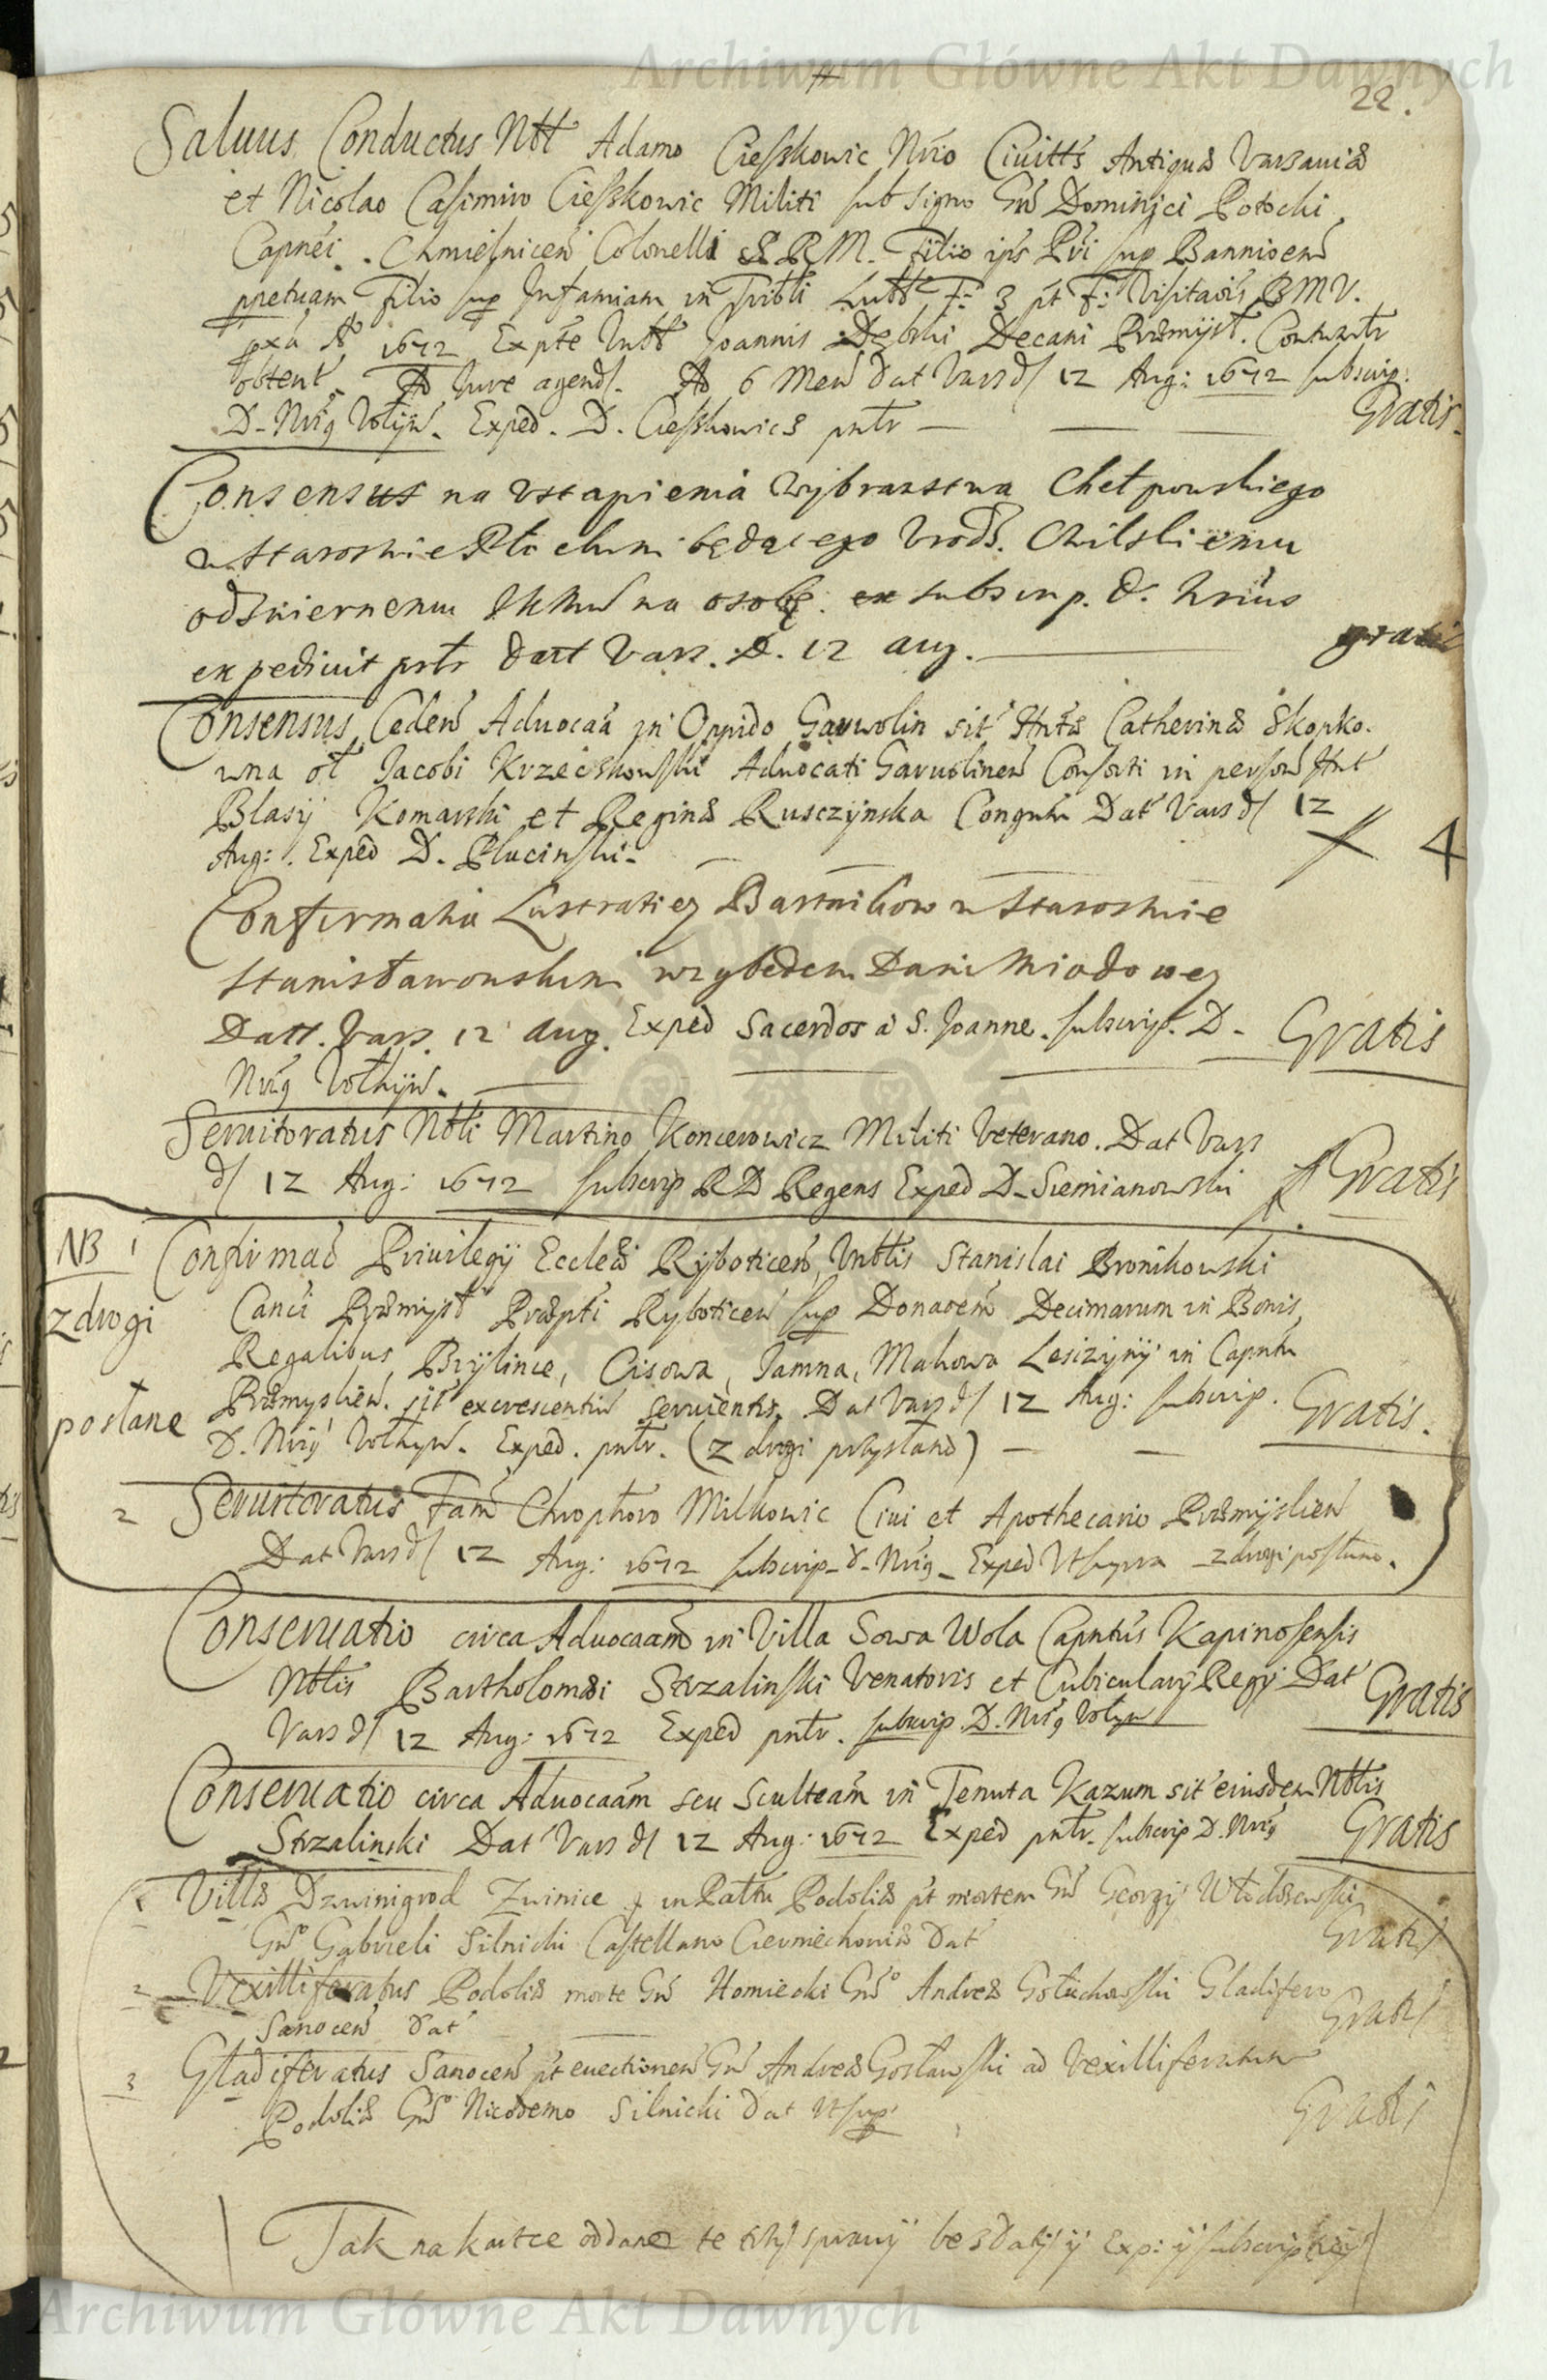 Archiwum Główne Akt Dawnych
22.
Saluus Conductus Nbl Adamo Cieszkowic Nrio Ciuitts Antiquæ Varsauiæ
et Nicolao Casimiro Cieszkowic Militi sub signo Gñ Dominici Potocki
Capnei Chmielnicen Colonelli S R M. Filio ips Pri sup Bannioem
ppetuam Filio sup Infamiam in Tribli Lubl F. 3 pt F: Visitaois BMV.
pxa Ao 1672 Expte Vnbl Joannis Dębski Decani Præmysl. Contumtr
obtent. Ad Jure agend. Ad 6 Men Dat Vars d 12 Aug: 1672 subscrip.
D. Nrig Vołyn. Exped. D. Cieszkowicz pntr Gratis.
Consensus na vstapienia Wybranstwa Chełpowskiego
w Starostwie Płockim będącego Vrodz. Chilskiemu
od Zwiernemu na osobę subscrip. D. Nrius
expediuit pntr Datt Vars. D. 12 aug. gratis
Consensus Ceden Aduocaa in Oppido Garwolin sit Hntæ Catherinæ Skopko-
wna ol Jacobi Krzeczkowski Aduocati Garuolinen Consorti in person Hnt
Blasij Komarski et Reginæ Rusczynska Congum Dat Vars d 12
Aug: Exped D. Plucinski. 4
Confirmatia Lustratiey Bartnikow w Starostwie
Stanisławowskim względem Dani Miodowey
Datt. Vars. 12 aug. Exped Sacerdos a S. Joanne. subscrip. D. Gratis
Nrig Vołhyn.
Seruitoratus Nbli Martino Koncewowicz Militi Veterano. Dat Vars
d 12 Aug: 1672 subscrip RD Regens Exped D. Siemianowski Gratis
NB 1 Confirmao Priuilegij Ecclesiæ Ryboticen, Vnblis Stanislai Bronikowski
zdrogi Canci Præmysl Præpti Ryboticen sup Donaoem Decimarum in Bonis
Regalibus Brylince, Cisowa, Jamna, Mahowa Lesizyny in Capntu
posłane Præmyslien. sit excrescentiu seruientis. Dat Vars d 12 Aug: subscrip. Gratis.
D. Nrig Vołhyn. Exped. pntr. (z drogi przysłano)
2 Seruitoratus Fam Chrophoro Milkowic Ciui et Apothecario Præmyslien
Dat Vars d 12 Aug: 1672 subscrip. d. Nrig. Exped Vt supra z drogi posłano.
Conseruatio circa Aduocaam in Villa Sowa Wola Capntus Kapinosensis
Nblis Bartholomæi Strzalinski Venatoris et Cubicularij Regij Dat Gratis
Vars d 12 Aug: 1672 Exped pntr. subscrip. D. Nrig Vołyn
Conseruatio circa Aduocaam seu Sculteam in Tenuta Kazum sit eiusdem Nblis
Strzalinski Dat Vars d 12 Aug: 1672 Exped pntr. subscrip D. Nrig Gratis
Villæ Dzwinigrod Zwinice in Paltu Podoliæ pt mortem Gñ Georgij
Gñso Gabrieli Silnicki Castellano Czerniechouiæ Dat Gratis
2 Vexilliferatus Podoliæ morte Gñ Homiecki Gñso Andreæ Gladifero
Sanocen Dat Gratis
3 Gladiferatus Sanocen pt euectionem Gñ Andreæ ad Vexilliferatum
Podoliæ Gñso Nicodemo Silnicki Dat Vt sup Gratis
Tak na kartce oddane te trzy sprawy bez Daty y Exp: y subscriptiey
Archiwum Główne Akt Dawnych